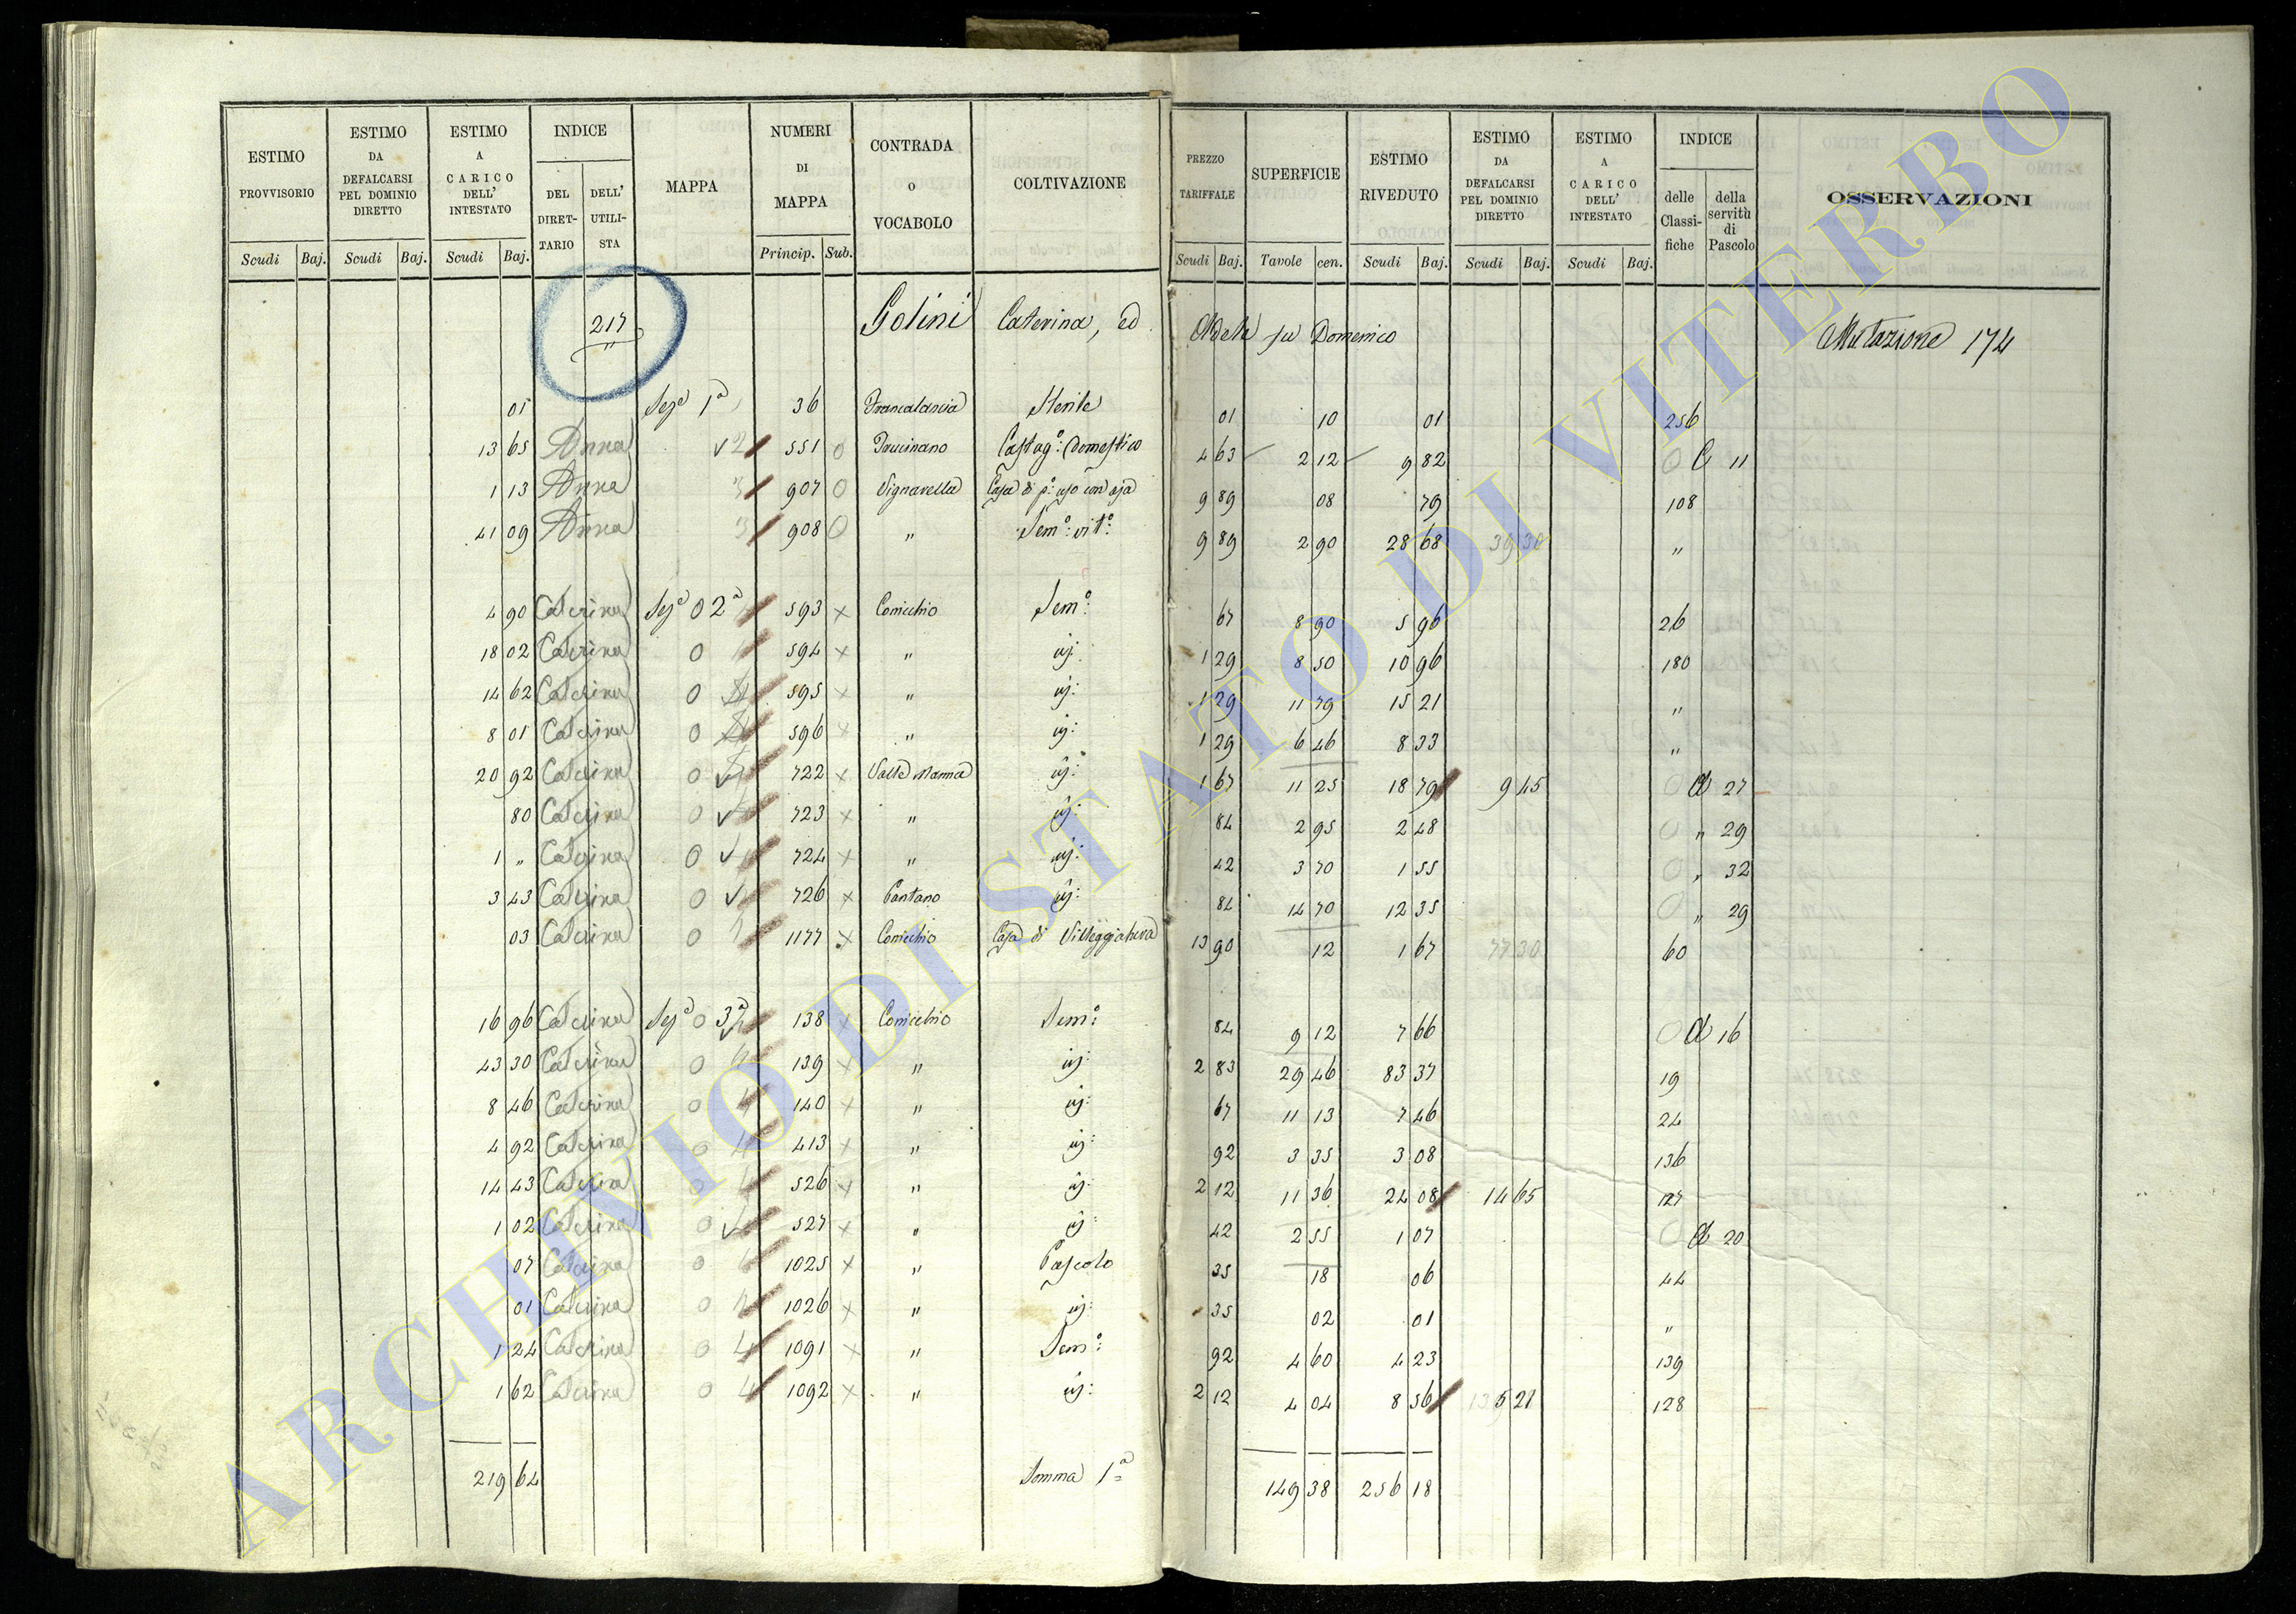 ESTIMO PROVVISORIO | ESTIMO DA DEFALCARSI PEL DOMINIO DIRETTO | ESTIMO A CARICO DELL' INTESTATO | INDICE DEL DIRET-TARIO | DELL' UTILI-STA | MAPPA | NUMERI DI MAPPA | CONTRADA O VOCABOLO | COLTIVAZIONE | PREZZO TARIFFALE | SUPERFICIE | ESTIMO RIVEDUTO | ESTIMO DA DEFALCARSI PEL DOMINIO DIRETTO | ESTIMO A CARICO DELL' INTESTATO | INDICE delle Classi-fiche | della servitù di Pascolo | OSSERVAZIONI
Scudi Baj. | Scudi Baj. | Scudi Baj. | Princip. Sub. | Scudi Baj. | Tavole cen. | Scudi Baj. | Scudi Baj. | Scudi Baj.
217 Golini Caterina, ed Adele fu Domenico Mutazione 174
01 Seze 1a 36 Sterile 01 10 01 256
13 65 Anna 2 551 0 Castago: Domestico 4 63 2 12 9 82 0 11
1 13 Anna 3 907 0 Vignarella Casa di po: uso con aja 9 89 08 79 108
41 09 Anna 3 908 0 " Semo: vito: 9 89 2 90 28 68 39 30 "
4 90 Caterina Seze 0 2a 593 x Conicchio Semo: 67 8 90 5 96 26
18 02 Caterina 0 594 x " iij: 1 29 8 50 10 96 180
14 62 Caterina 0 595 x " iij: 1 29 11 79 15 21 "
8 01 Caterina 0 596 x " iij: 1 29 6 46 8 33 "
20 92 Caterina 0 722 x Valle Nanna iij: 1 67 11 25 18 79 9 45 0 A 27
80 Caterina 0 723 x " iij: 84 2 95 2 48 0 " 29
1 " Caterina 0 724 x " iij: 42 3 70 1 55 0 " 32
3 43 Caterina 0 726 x Pantano iij: 84 14 70 12 35 0 " 29
03 Caterina 0 1177 x Conicchio Casa di Villeggiatura 13 90 12 1 67 77 30 60
16 96 Caterina Seze 0 3a 138 x Conicchio Semo: 84 9 12 7 66 0 A 16
43 30 Caterina 0 139 x " iij: 2 83 29 46 83 37 19
8 46 Caterina 0 140 x " iij: 67 11 13 7 46 24
4 92 Caterina 0 413 x " iij: 92 3 35 3 08 136
14 43 Caterina 0 526 x " iij: 2 12 11 36 24 08 14 65 127
1 02 Caterina 0 527 x " iij: 42 2 55 1 07 0 A 20
07 Caterina 0 1025 x " Pascolo 35 18 06 44
01 Caterina 0 1026 x " iij: 35 02 01 "
1 24 Caterina 0 4 1091 x " Semo: 92 4 60 4 23 139
1 62 Caterina 0 4 1092 x " iij: 2 12 4 04 8 56 128
219 64 Somma 1a 149 38 256 18
ARCHIVIO DI STATO DI VITERBO